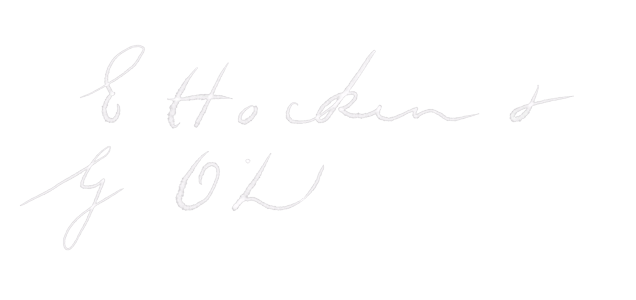 E Hocken &
G Oil